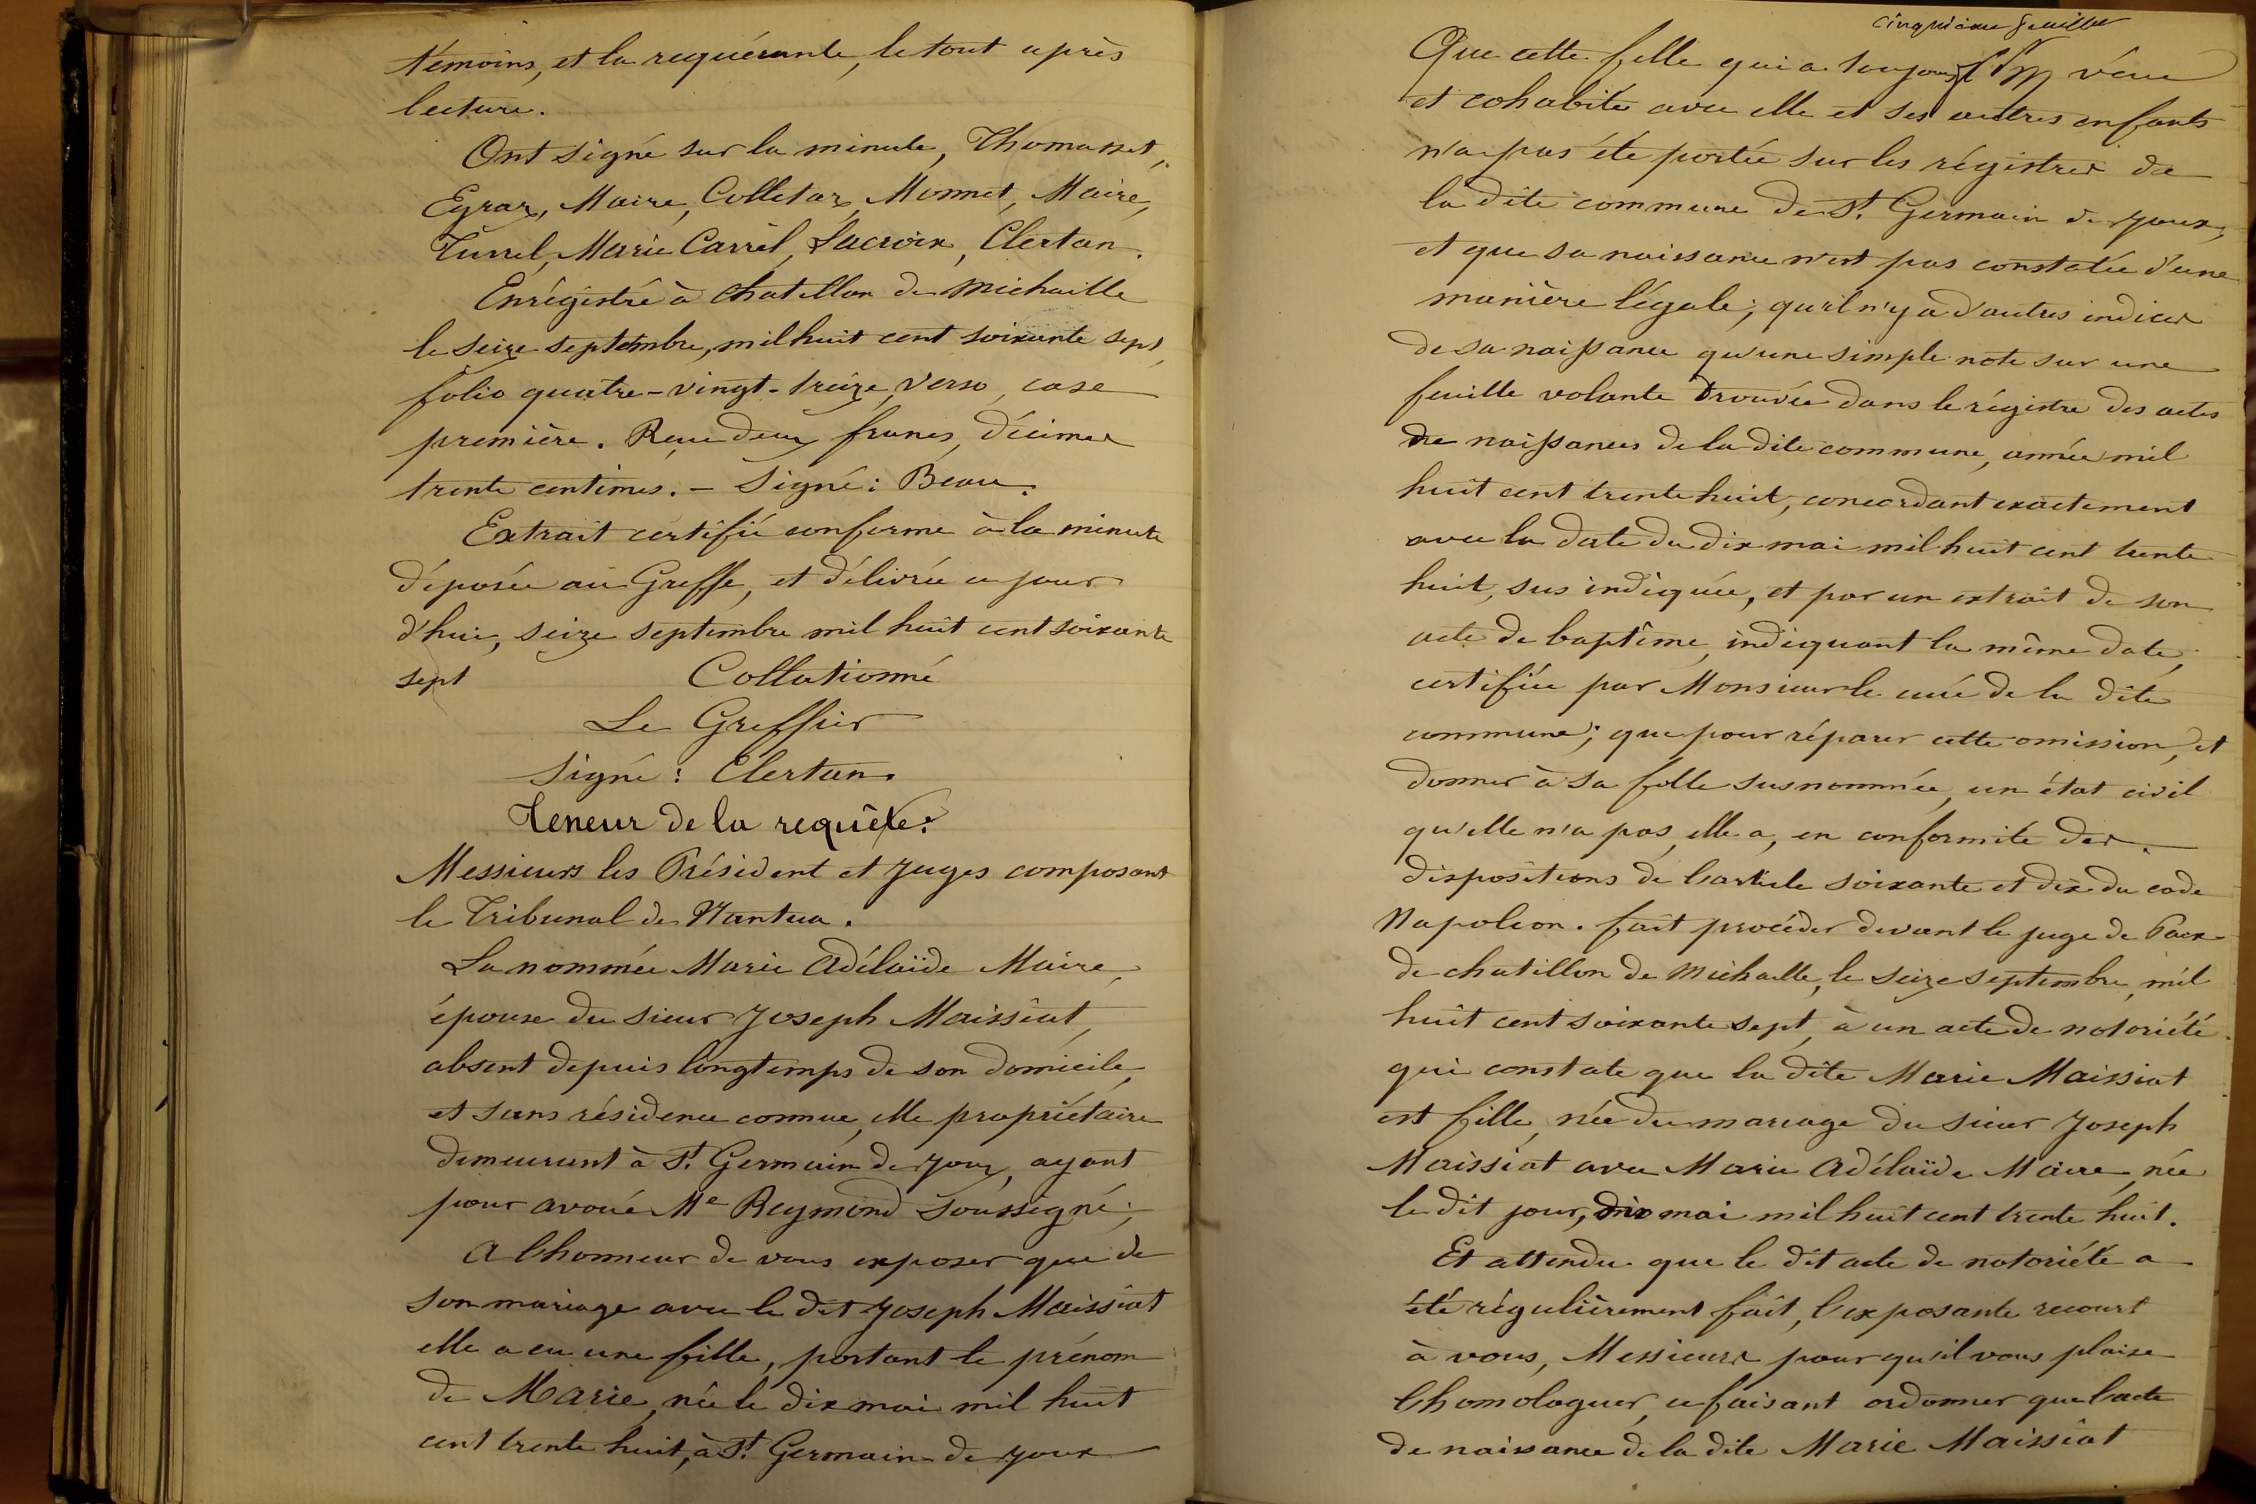 témoins, et la requérante, le tout après
lecture.
Ont signé sur la minute, Thomasset,
Egraz, Maire, Colletaz, Monnet, Maire,
Turrel, Marie Carrel, Lacroix, Clertan.
Enrégistré à Chatillon de Michaille
le seize septembre, mil huit cent soixante sept,
folio quatre-vingt-treize, verso, case
première. Reçu deux francs, décimes
trente centimes. - Signé : Beau.
Extrait certifié conforme à la minute
déposée au Greffe, et délivrée ce jour
d'hui, seize septembre mil huit cent soixante
sept Collationné
Le Greffier
Signé : Clertan.
Teneur de la requête :
Messieurs les Président et Juges composant
le Tribunal de Nantua.
La nommée Marie Adélaïde Maire,
épouse du sieur Joseph Maissiat,
absent depuis longtemps de son domicile,
et sans résidence connue, elle propriétaire
demeurant à St Germain de Joux, ayant
pour avoué Me Reymond soussigné ;
A l'honneur de vous exposer que de
son mariage avec le dit Joseph Maissiat
elle a eu une fille, portant le prénom
de Marie, née le dix mai mil huit
cent trente huit, à St Germain de Joux
Cinquième feuillet
Que cette fille qui a toujours vécu
et cohabité avec elle et ses autres enfants
n'a pas été portée sur les régistres de
la dite commune de St Germain de Joux,
et que sa naissance n'est pas constatée d'une
manière légale ; qu'il n'y a d'autres indices
de sa naissance qu'une simple note sur une
feuille volante trouvée dans le régistre des actes
de naissances de la dite commune, année mil
huit cent trente huit, concordant exactement
avec la date du dix mai mil huit cent trente
huit, sus indiquée, et par un extrait de son
acte de baptême, indiquant la même date,
certifiée par Monsieur le curé de la dite
commune ; que pour réparer cette omission, et
donner à sa fille susnommée, un état civil
qu'elle n'a pas, elle a, en conformité des
dispositions de l'article soixante et dix du code
Napoléon. fait procéder devant le juge de Paix
de Chatillon de Michaille, le seize septembre, mil
huit cent soixante sept, à un acte de notoriété
qui constate que la dite Marie Maissiat
est fille, née du mariage du sieur Joseph
Maissiat avec Marie Adélaïde Maire, née
le dit jour, dix mai mil huit cent trente huit.
Et attendu que le dit acte de notoriété a
été régulièrement fait, l'exposante recourt
à vous, Messieurs pour qu'il vous plaise
l'homologuer, ce faisant ordonner que l'acte
de naissance de la dite Marie Maissiat